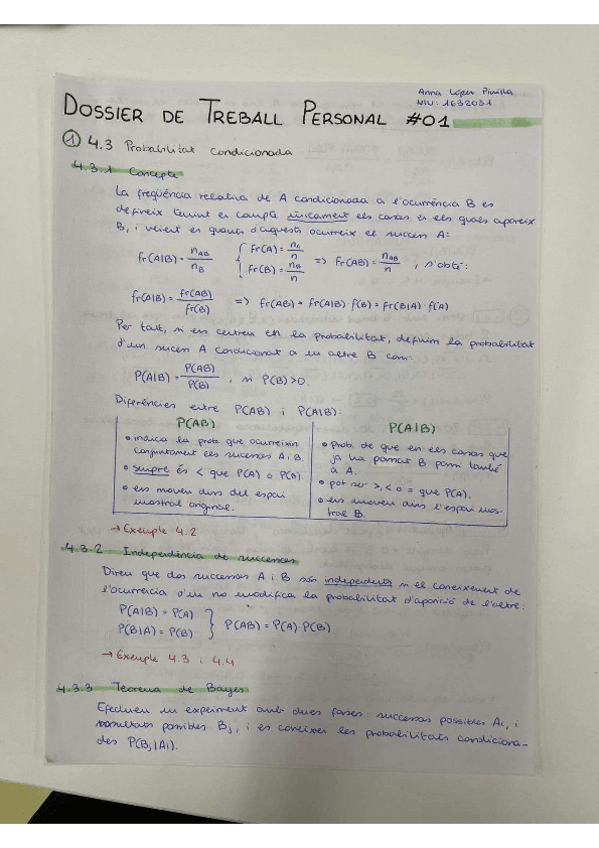 Anna López Pinilla
NIU: 1632031
DOSSIER DE TREBALL PERSONAL #01
① 4.3 Probabilitat condicionada
4.3.1 Concepte
La freqüència relativa de A condicionada a l'ocurrència B es
defineix tenint en compte únicament els casos en els quals apareix
B, i veient en quants d'aquests ocurreix el succés A:
fr(A|B) = n_AB / n_B { fr(A) = n_A / n fr(B) = n_B / n => fr(AB) = n_AB / n , s'obté:
fr(A|B) = fr(AB) / fr(B) => fr(AB) = fr(A|B)·f(B) = fr(B|A)·f(A)
Per tant, si ens centrem en la probabilitat, definim la probabilitat
d'un succés A condicionat a un altre B com:
P(A|B) = P(AB) / P(B) , si P(B)>0.
Diferències entre P(AB) i P(A|B):
P(AB)
• indica la prob. que ocurreixin
conjuntament els successos A i B.
• sempre és < que P(A) o P(B).
• ens movem dins del espai
mostral original.
P(A|B)
• prob. de que en els casos que
ja ha passat B passi també
a A.
• pot ser >, < o = que P(A).
• ens movem dins l'espai mos-
tral B.
→ Exemple 4.2
4.3.2 Independència de successos
Direm que dos successos A i B són independents si el coneixement de
l'ocurrència d'un no modifica la probabilitat d'aparició de l'altre:
P(A|B) = P(A)
P(B|A) = P(B) } P(AB) = P(A)·P(B)
→ Exemple 4.3 i 4.4
4.3.3 Teorema de Bayes
Efectuem un experiment amb dues fases: successos possibles Ai, i
resultats possibles Bj, i es coneixen les probabilitats condiciona-
des P(Bj|Ai).